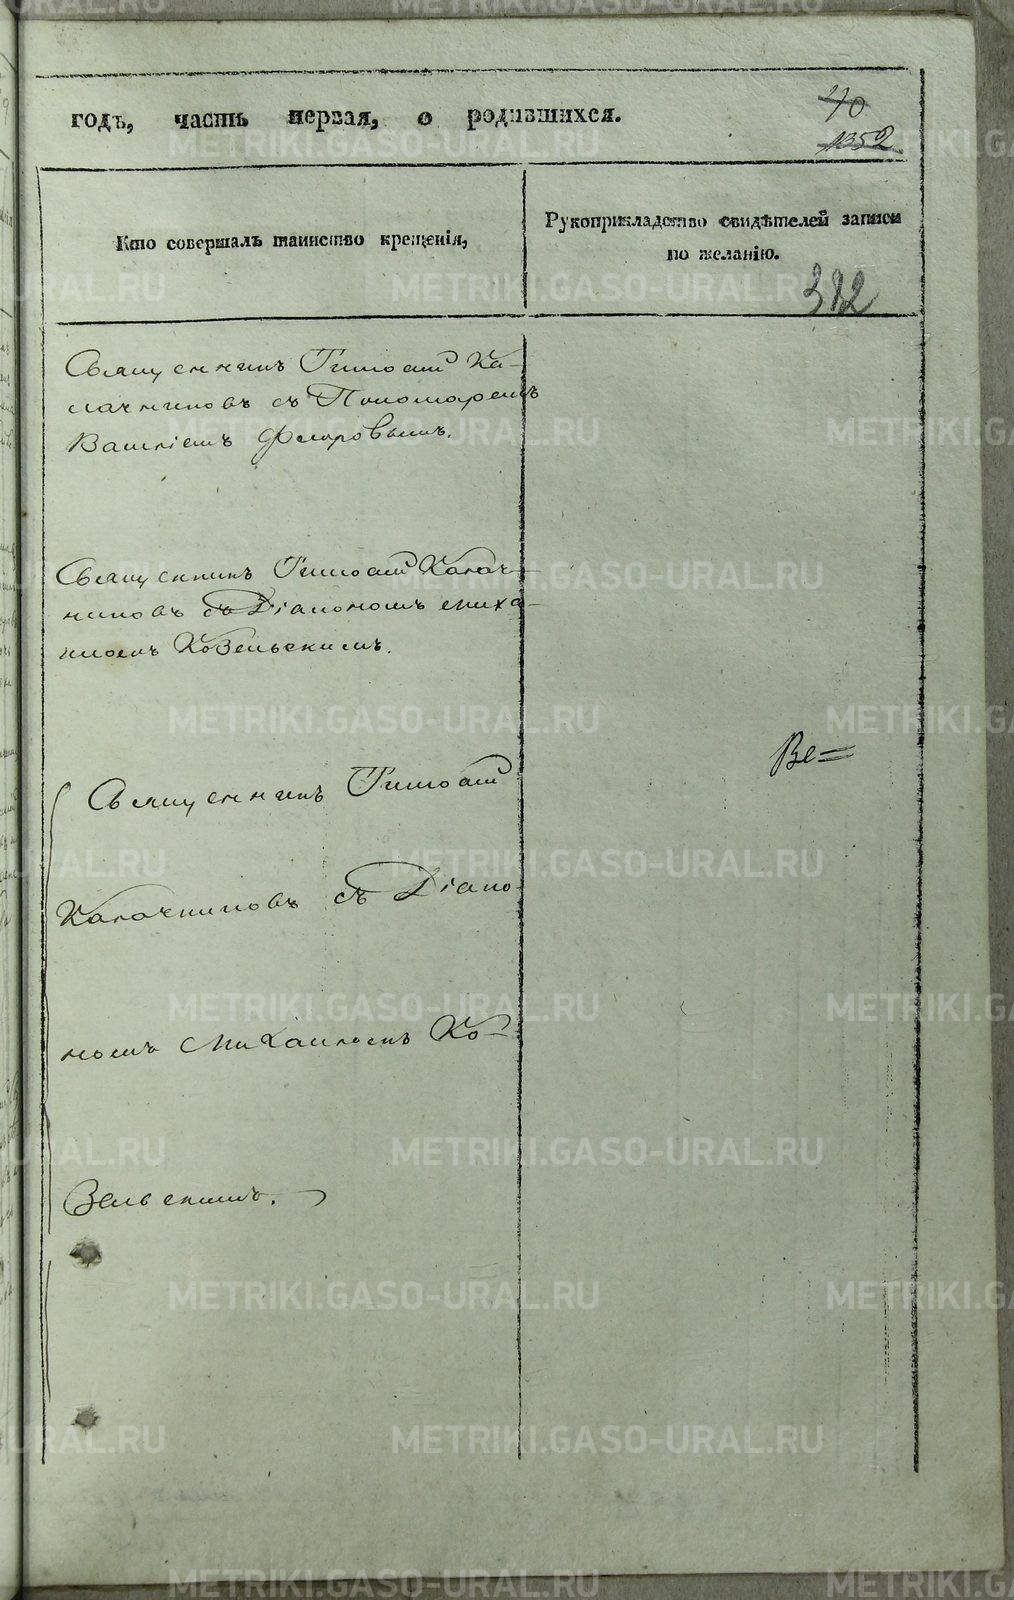 годъ, часть первая, о родившихся.
40
1352
Кто совершалъ таинство крещенія,
Рукоприкладство свидѣтелей записи
по желанію.
382
Священникъ Тимоѳей Ка-
лачниковъ съ Пономаремъ
Василіемъ Флоровымъ.
Священникъ Тимоѳей Калач-
никовъ съ Діакономъ Миха-
иломъ Козельскимъ.
Священникъ Тимоѳей
Калачниковъ съ Діако-
номъ Михаиломъ Ко-
зельскимъ.
Ве=
METRIKI.GASO-URAL.RU